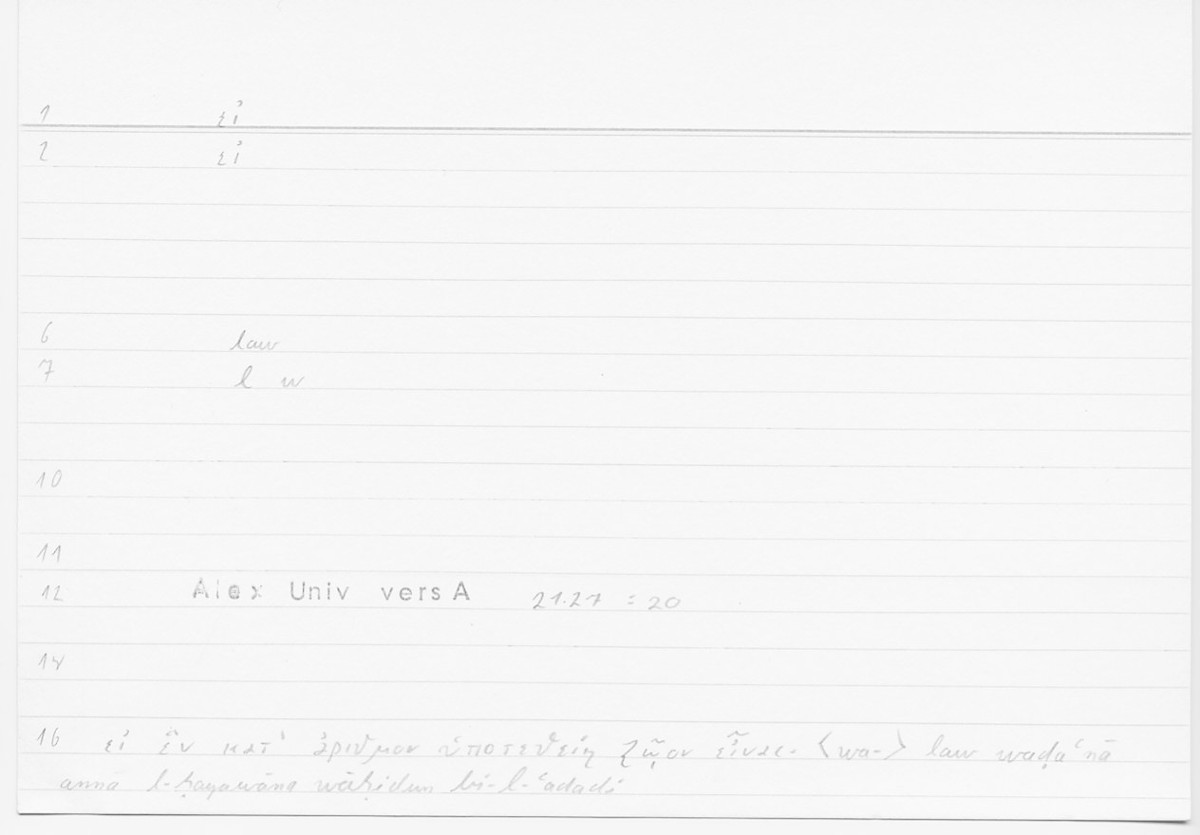 1 εἰ
2 εἰ
6 law
7 l w
10
11
12 Alex Univ vers A 21.27 = 20
14
16 εἰ ἓν κατ' ἀριθμὸν ὑποτεθείη ζῷον εἶναι· ⟨wa-⟩ law waḍaʿnā
anna l-ḥayawāna wāḥidun bi-l-ʿadadi